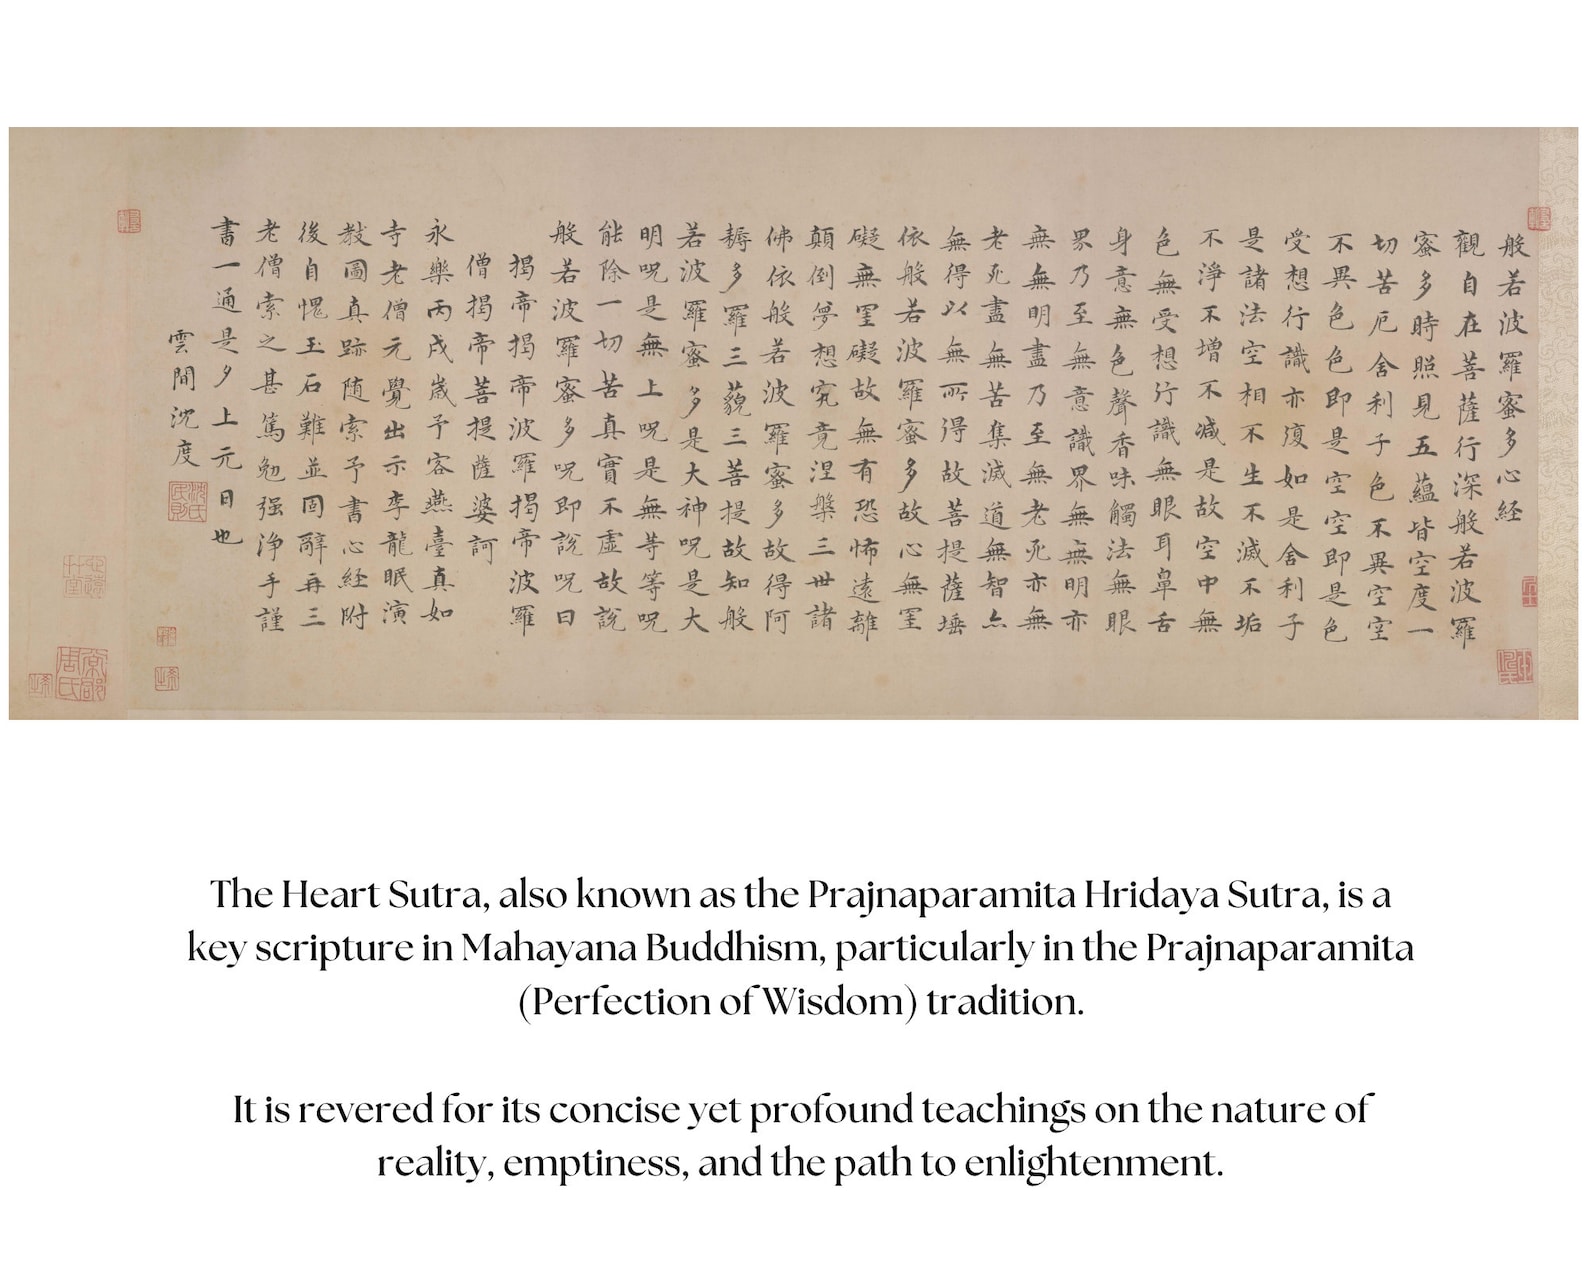 般若波羅蜜多心経
觀自在菩薩行深般若波羅
蜜多時照見五蘊皆空度一
切苦厄舍利子色不異空空
不異色色即是空空即是色
受想行識亦復如是舍利子
是諸法空相不生不滅不垢
不淨不增不減是故空中無
色無受想行識無眼耳鼻舌
身意無色聲香味觸法無眼
界乃至無意識界無無明亦
無無明盡乃至無老死亦無
老死盡無苦集滅道無智亦
無得以無所得故菩提薩埵
依般若波羅蜜多故心無罣
礙無罣礙故無有恐怖遠離
顛倒夢想究竟涅槃三世諸
佛依般若波羅蜜多故得阿
耨多羅三藐三菩提故知般
若波羅蜜多是大神呪是大
明呪是無上呪是無等等呪
能除一切苦真實不虛故說
般若波羅蜜多呪即說呪曰
揭帝揭帝波羅揭帝波羅
僧揭帝菩提薩婆訶
永樂丙戌歲予客燕臺真如
寺老僧元覺出示李龍眠演
教圖真跡随索予書心経附
後自愧玉石難並固辭再三
老僧索之甚篤勉强淨手謹
書一通是夕上元日也
雲間沈度
The Heart Sutra, also known as the Prajnaparamita Hridaya Sutra, is a
key scripture in Mahayana Buddhism, particularly in the Prajnaparamita
(Perfection of Wisdom) tradition.
It is revered for its concise yet profound teachings on the nature of
reality, emptiness, and the path to enlightenment.